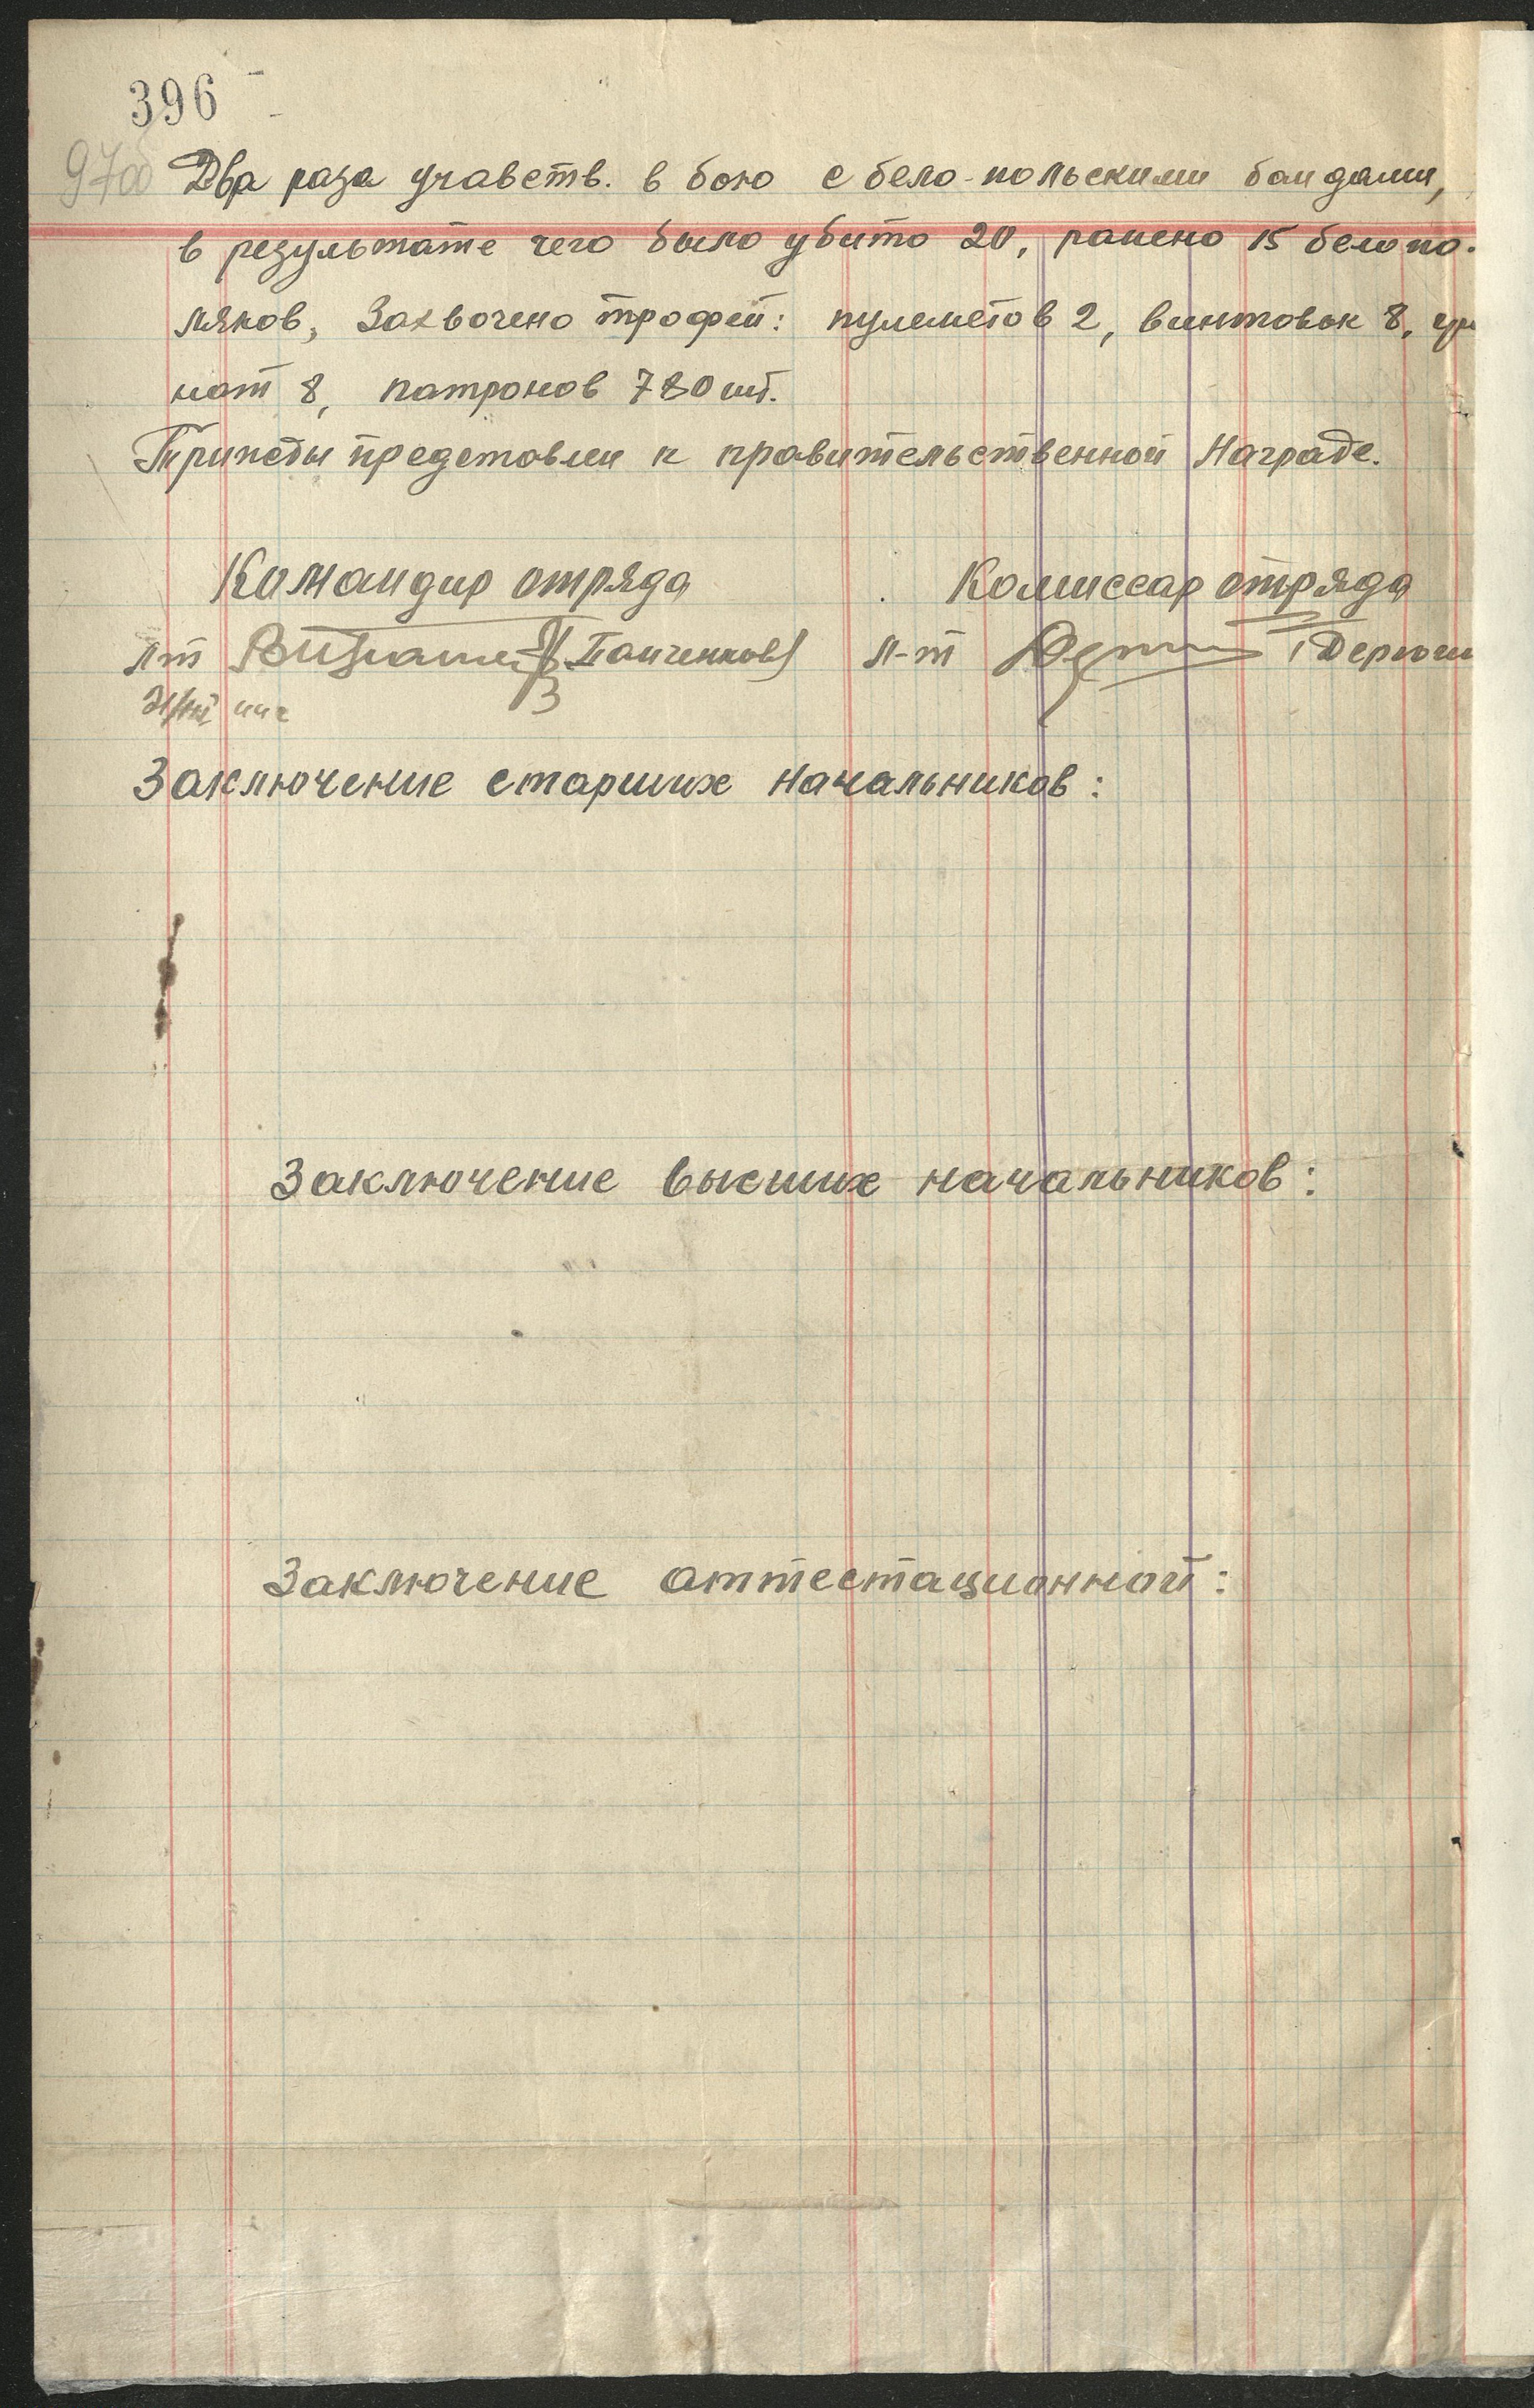 396
97об
Два раза учавств. в бою с бело-польскими бандами,
в результате чего было убито 20, ранено 15 белопо-
ляков, Захвачено трофеи: пулеметов 2, винтовок 8, гра
нат 8, патронов 780 шт.
Трижды представлен к правительственной Награде.
Командир отряда
Комиссар отряда
л-т Панченков)
л-т (Дерюги
Заключение старших начальников:
Заключение высших начальников:
Заключение аттестационной: